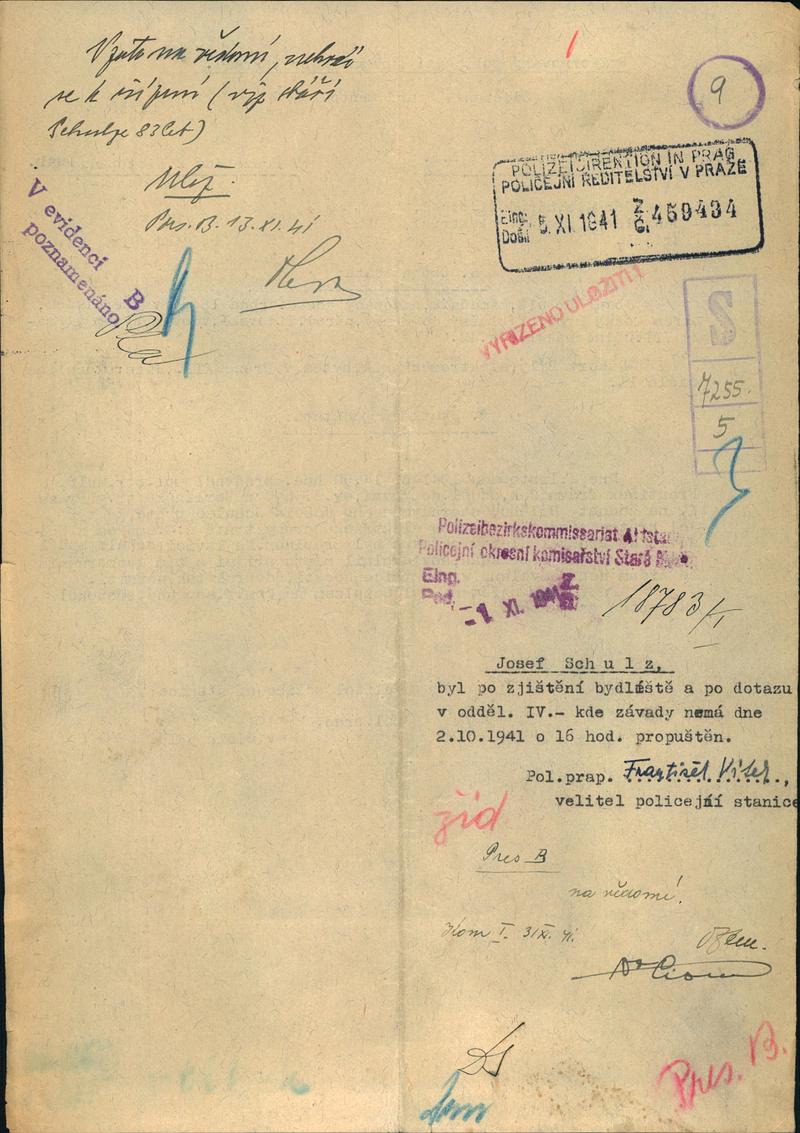 Vzato na vědomí, nehodí
se k
(
stáří
Schulze 83 let)
Ulož.
Pres. B. 13. XI. 41
V evidenci B
poznamenáno
9
POLIZEIDIREKTION IN PRAG
POLICEJNÍ ŘEDITELSTVÍ V PRAZE
Eing.
Došlo 5. XI. 1941 Z. č. 459434
VYŘÍZENO ULOŽITI!
S
7255.
5
Polizeibezirkskommissariat Altstadt
Policejní okresní komisařství Staré
Eing.
Pod. -1. XI. 1941 18783/I
Josef Sch u l z,
byl po zjištění bydliště a po dotazu
v odděl. IV.- kde závady nemá dne
2.10.1941 o 16 hod. propuštěn.
Pol.prap. František Vítek,
velitel policejní stanice
žid
Pres B
na vědomí.
Kom I. 3/XI. 41.
Pres. B.